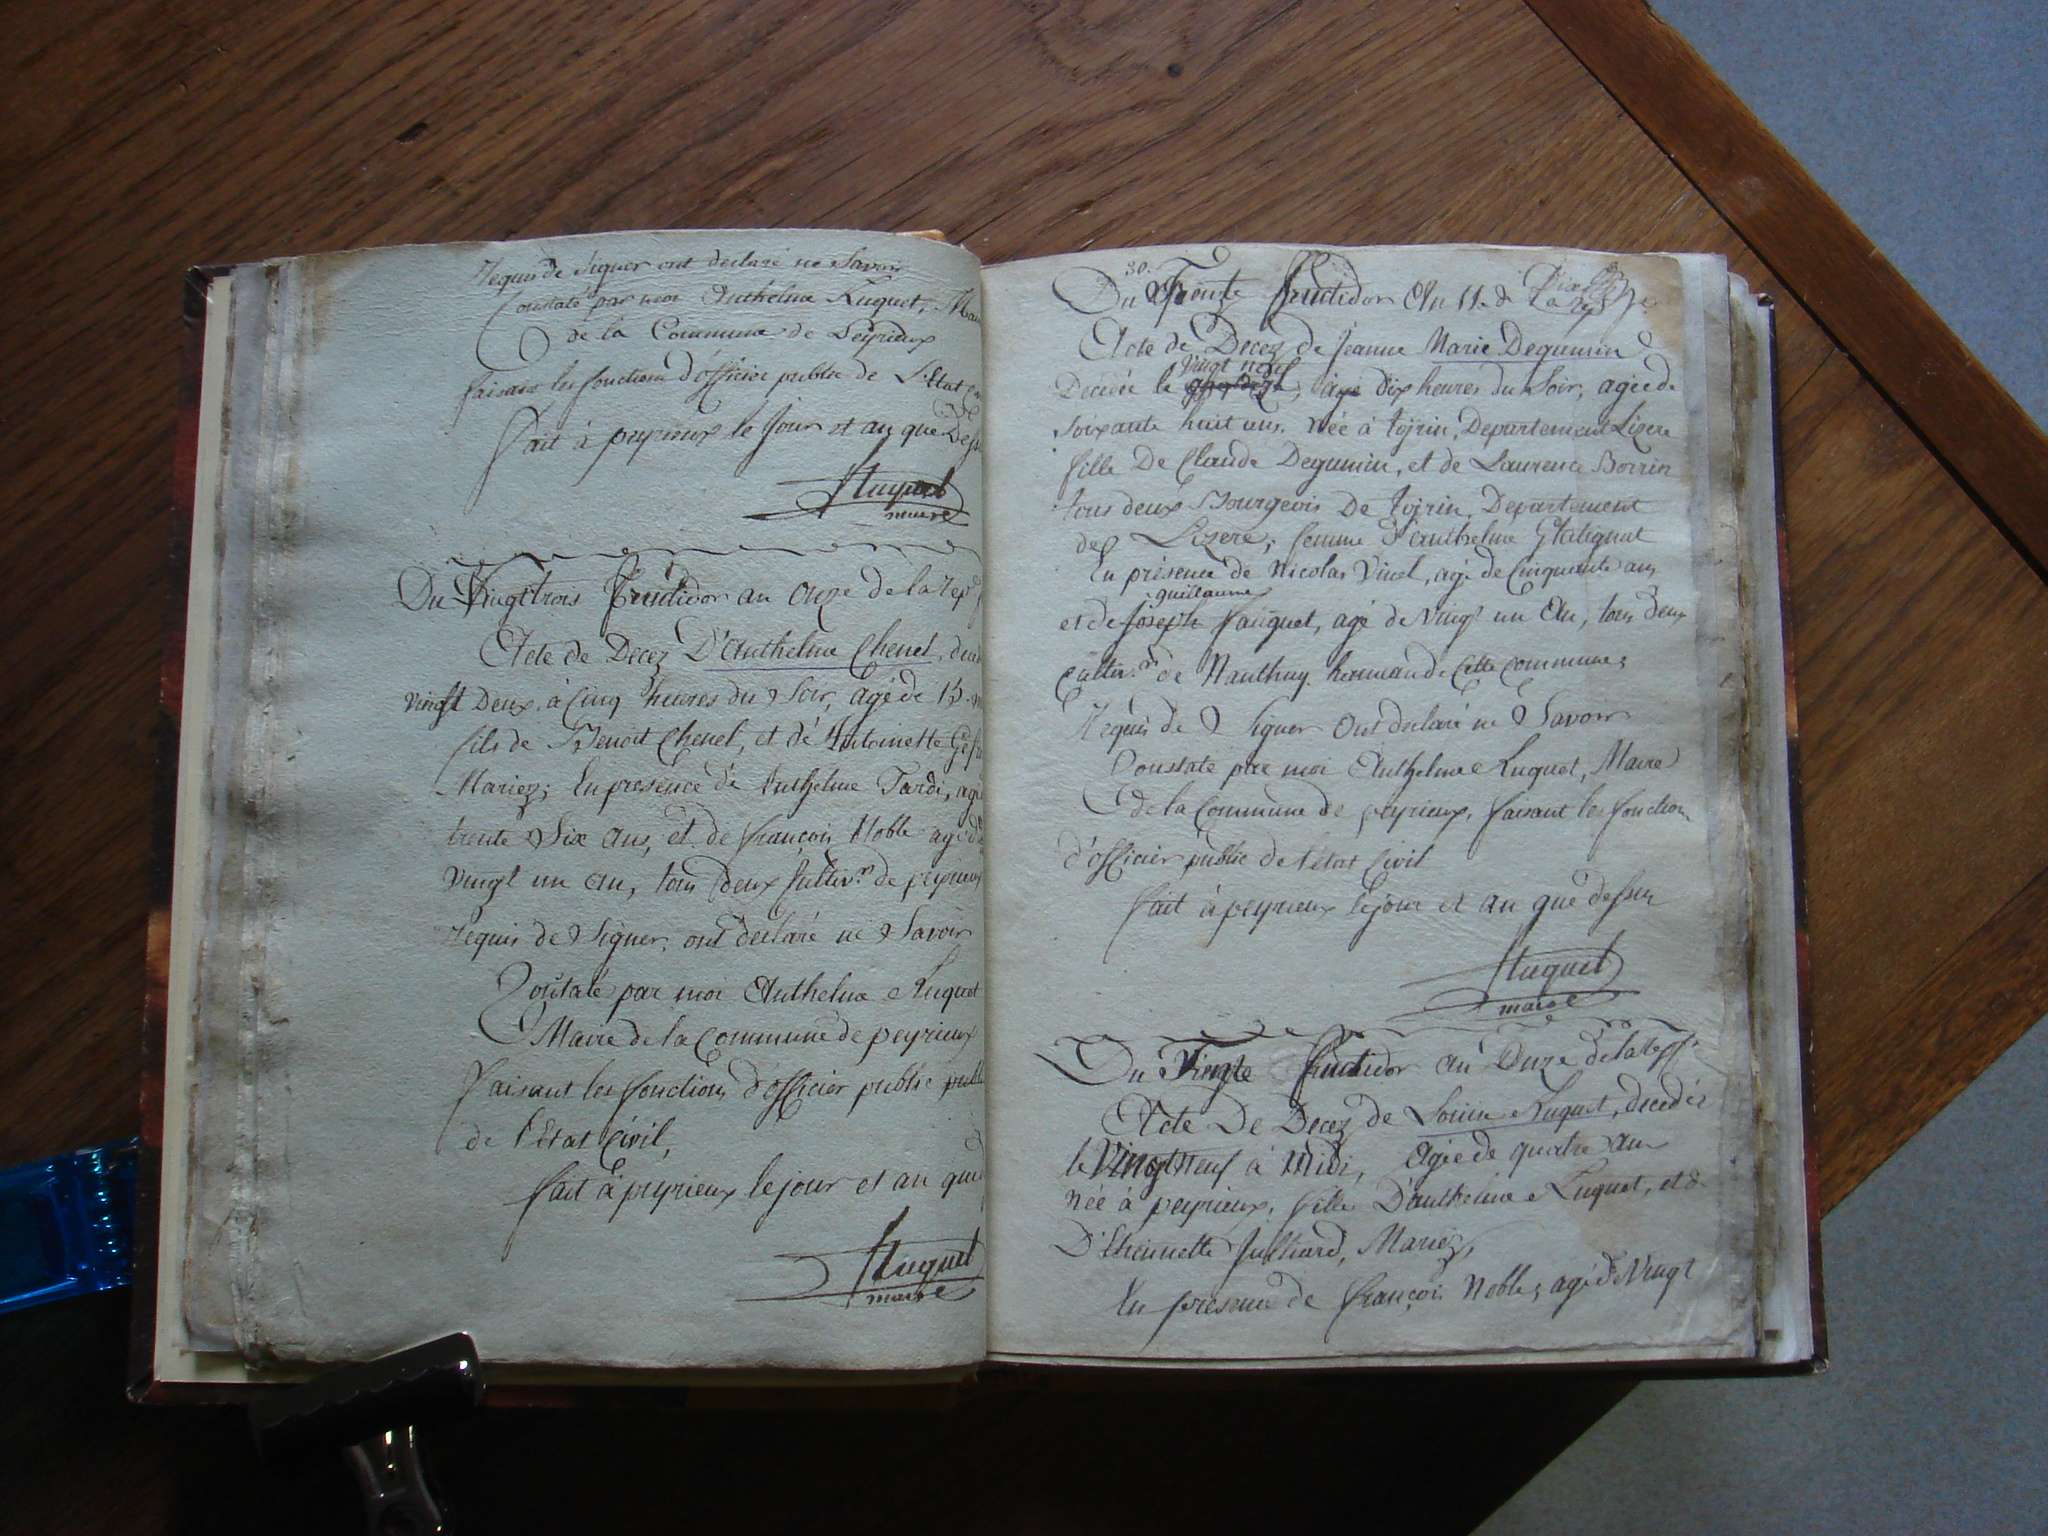 Requis de Signer ont declaré ne Savoir
Constaté par moi Anthelme Luquet, Mai
de la Commune de Peyrieux
faisant les fonctions d'officier public de L'Etat
fait à peyrieux le Jour et an que
Luquet
maire
Du Vingt trois Fructidor an onze de la rep
Acte de Decez D'Anthelme Chenel,
vingt Deux, à Cinq heures du Soir, agé de 15
fils de Benoit Chenel, et de Antoinette
Mariez; En presence de Anthelme Tardi, agé
trente Six ans, et de françois Noble agé de
vingt un an, tous deux Cultiv.rs de peyrieux
Requis de Signer, ont declaré ne Savoir
Constaté par moi Anthelme Luquet
Maire de la Commune de peyrieux
Faisant les fonctions d'officier public publ
de l'Etat Civil,
fait à peyrieux le jour et an que
Luquet
maire
30.
Du Trente Fructidor An 11. de La rep
Acte de Decez de Jeanne Marie Degumin
vingt neuf
Decedée le à dix heures du Soir, agée de
Soixante huit ans. Née à , Departement Lizere
fille De Claude Degumin, et de Laurence Borrin
tous deux Bourgeois De , Departement
de Lizere; femme D'anthelme Glatignat
En présence de Nicolas Vinel, agé de Cinquante ans
guillaume
et de Joseph fauguet, agé de Vingt un An, tous deux
Cultiv.rs de Nanthuy hameau de Cette Commune;
Requis de Signer Ont declaré ne Savoir
Constaté par moi Anthelme Luquet, Maire
de la Commune de peyrieux, faisant les fonction
d'officier public de l'état Civil
fait à peyrieux le jour et an que dessus
Luquet
maire
Du Trente Fructidor an Onze de la rep
Acte De Decez de Louise Luquet, decedée
le Vingt neuf à Midi, Agée de quatre an
Née à peyrieux, fille D'anthelme Luquet, et de
D'Etiennette Julliard, Mariez,
En presence de françois Noble, agé de Vingt